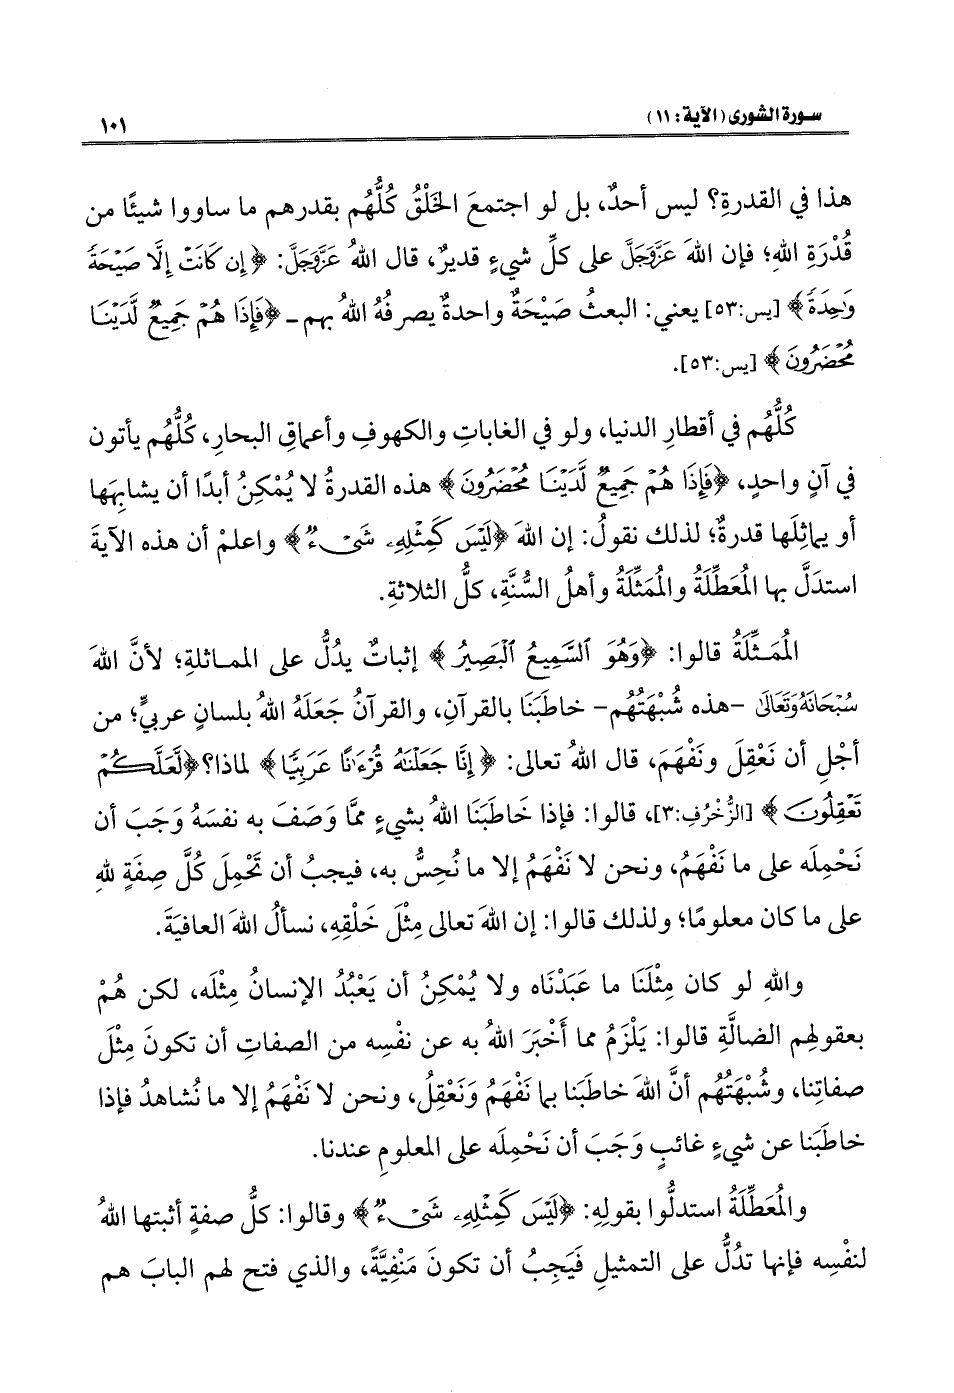 سورة الشورى (الآية: ١١)
١٠١
هذا في القدرةِ؟ ليس أحدٌ، بل لو اجتمعَ الخَلْقُ كُلُّهُم بقدرهم ما ساووا شيئًا من
قُدْرَةِ اللهِ؛ فإن اللهَ عَزَّوَجَلَّ على كلِّ شيءٍ قديرٌ، قال اللهُ عَزَّوَجَلَّ: ﴿إِن كَانَتْ إِلَّا صَيْحَةً
وَاحِدَةً﴾ [يس:٥٣] يعني: البعثُ صَيْحَةٌ واحدةٌ يصرفُهُ اللهُ بهم – ﴿فَإِذَا هُمْ جَمِيعٌ لَّدَيْنَا
مُحْضَرُونَ﴾ [يس:٥٣].
كُلُّهُم في أقطارِ الدنيا، ولو في الغاباتِ والكهوفِ وأعماقِ البحارِ، كُلُّهُم يأتون
في آنٍ واحدٍ، ﴿فَإِذَا هُمْ جَمِيعٌ لَّدَيْنَا مُحْضَرُونَ﴾ هذه القدرةُ لا يُمْكِنُ أبدًا أن يشابِهَها
أو يماثِلَها قدرةٌ؛ لذلك نقولُ: إن اللهَ ﴿لَيْسَ كَمِثْلِهِۦ شَىْءٌ﴾ واعلمْ أن هذه الآيةَ
استدَلَّ بها المُعَطِّلَةُ والمُمَثِّلَةُ وأهلُ السُّنَّةِ، كلُّ الثلاثةِ.
المُمَثِّلَةُ قالوا: ﴿وَهُوَ ٱلسَّمِيعُ ٱلْبَصِيرُ﴾ إثباتٌ يدُلُّ على المماثلةِ؛ لأنَّ اللهَ
سُبْحَانَهُ وَتَعَالَى -هذه شُبْهَتُهُم- خاطَبَنَا بالقرآنِ، والقرآنُ جَعَلَهُ اللهُ بلسانٍ عربيٍّ؛ من
أجْلِ أن نَعْقِلَ ونَفْهَمَ، قال اللهُ تعالى: ﴿إِنَّا جَعَلْنَٰهُ قُرْءَٰنًا عَرَبِيًّا﴾ لماذا؟ ﴿لَّعَلَّكُمْ
تَعْقِلُونَ﴾ [الزُّخْرُفِ:٣]، قالوا: فإذا خَاطَبَنَا اللهُ بشيءٍ ممَّا وَصَفَ به نفسَهُ وَجَبَ أن
نَحْمِلَه على ما نَفْهَمُ، ونحن لا نَفْهَمُ إلا ما نُحِسُّ به، فيجبُ أن نَحْمِلَ كُلَّ صِفَةٍ للهِ
على ما كان معلومًا؛ ولذلك قالوا: إن اللهَ تعالى مِثْلَ خَلْقِهِ، نسألُ اللهَ العافيَةَ.
واللهِ لو كان مِثْلَنَا ما عَبَدْنَاه ولا يُمْكِنُ أن يَعْبُدُ الإنسانُ مِثْلَه، لكن هُمْ
بعقولِهم الضالَّةِ قالوا: يَلْزَمُ مما أَخْبَرَ اللهُ به عن نفْسِه من الصفاتِ أن تكونَ مِثْلَ
صفاتِنا، وشُبْهَتُهُم أنَّ اللهَ خاطَبَنا بما نَفْهَمُ وَنَعْقِلُ، ونحن لا نَفْهَمُ إلا ما نُشاهدُ فإذا
خاطَبَنا عن شيءٍ غائبٍ وَجَبَ أن نَحْمِلَه على المعلومِ عندنا.
والمُعَطِّلَةُ استدلُّوا بقولِهِ: ﴿لَيْسَ كَمِثْلِهِۦ شَىْءٌ﴾ وقالوا: كلُّ صفةٍ أثبتها اللهُ
لنفْسِه فإنها تدُلُّ على التمثيلِ فَيَجِبُ أن تكونَ مَنْفِيَّةً، والذي فتح لهم البابَ هم